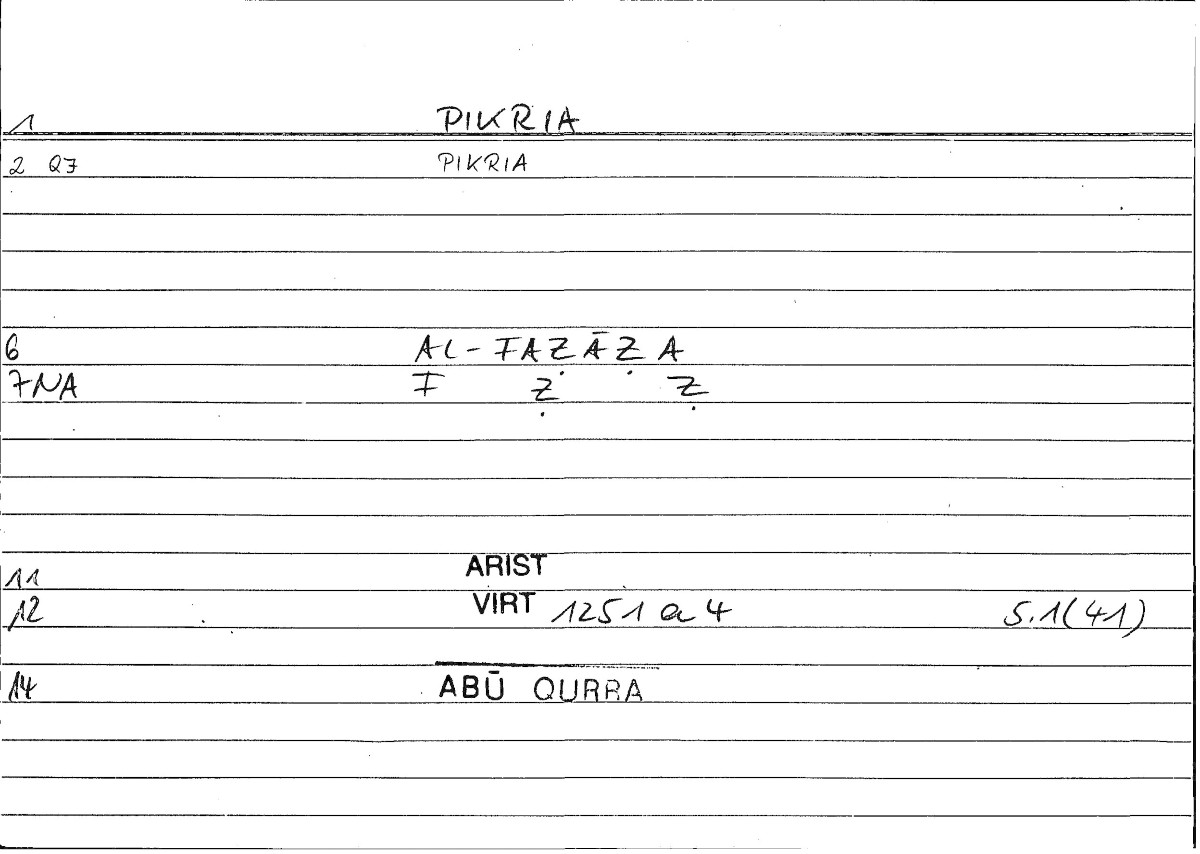 1 PIKRIA
2 Q7 PIKRIA
6 AL-FAẒĀẒA
7NA F Ẓ Ẓ
11 ARIST
12 VIRT 1251 a 4 S.1(41)
14 ABŪ QURRA